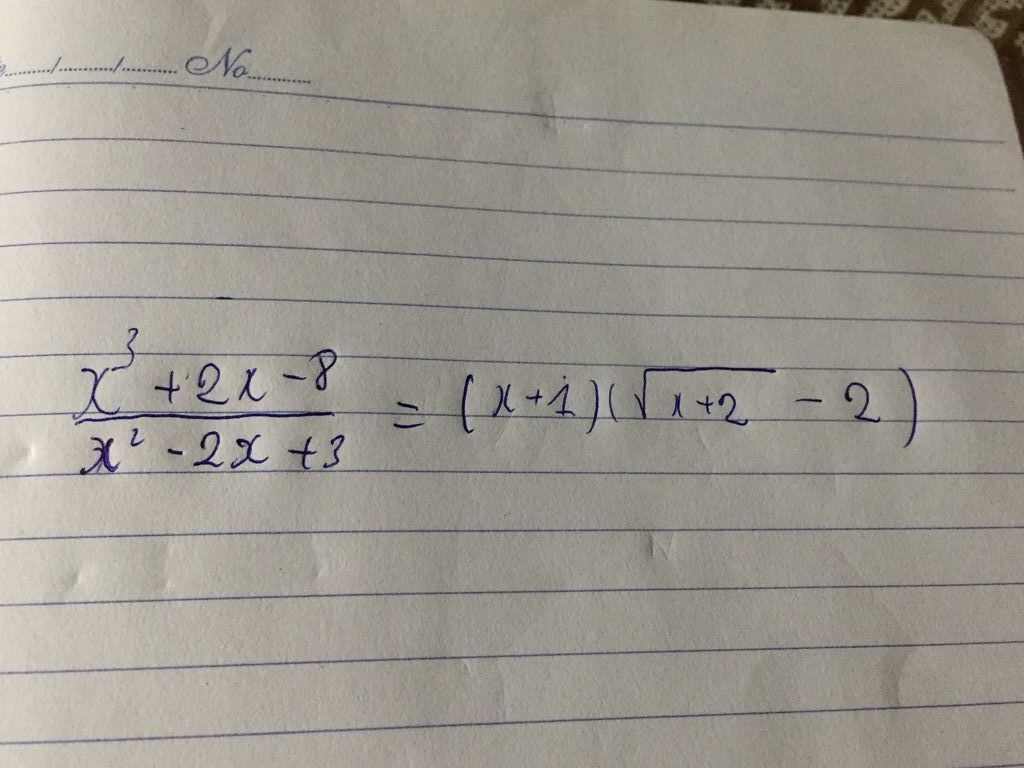 / / No
x³ + 2x - 8 / x² - 2x + 3 = (x+1)(√(x+2) - 2)